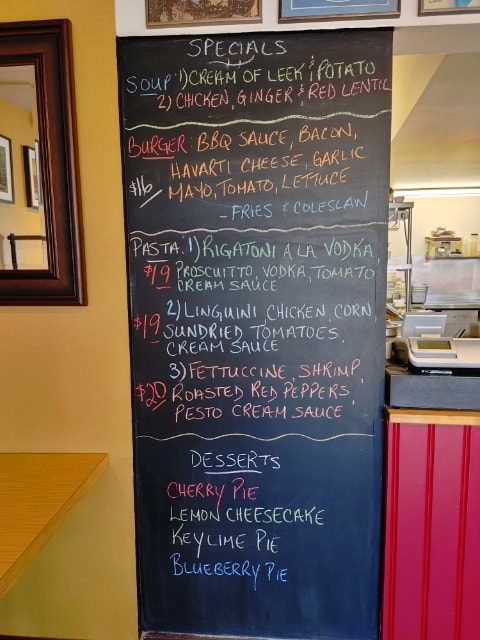 SPECIALS
SOUP: 1) CREAM OF LEEK & POTATO
2) CHICKEN, GINGER & RED LENTIL
BURGER: BBQ SAUCE, BACON,
HAVARTI CHEESE, GARLIC
$16 MAYO, TOMATO, LETTUCE
- FRIES & COLESLAW
PASTA: 1) RIGATONI A LA VODKA
$19 PROSCUITTO, VODKA, TOMATO
CREAM SAUCE
2) LINGUINI CHICKEN, CORN,
$19 SUNDRIED TOMATOES,
CREAM SAUCE
3) FETTUCCINE, SHRIMP,
$20 ROASTED RED PEPPERS,
PESTO CREAM SAUCE,
DESSERTS
CHERRY PIE
LEMON CHEESECAKE
KEYLIME PIE
BLUEBERRY PIE